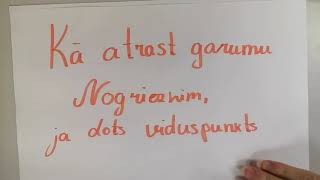 Kā atrast garumu
Nogrieznim,
ja dots viduspunkts